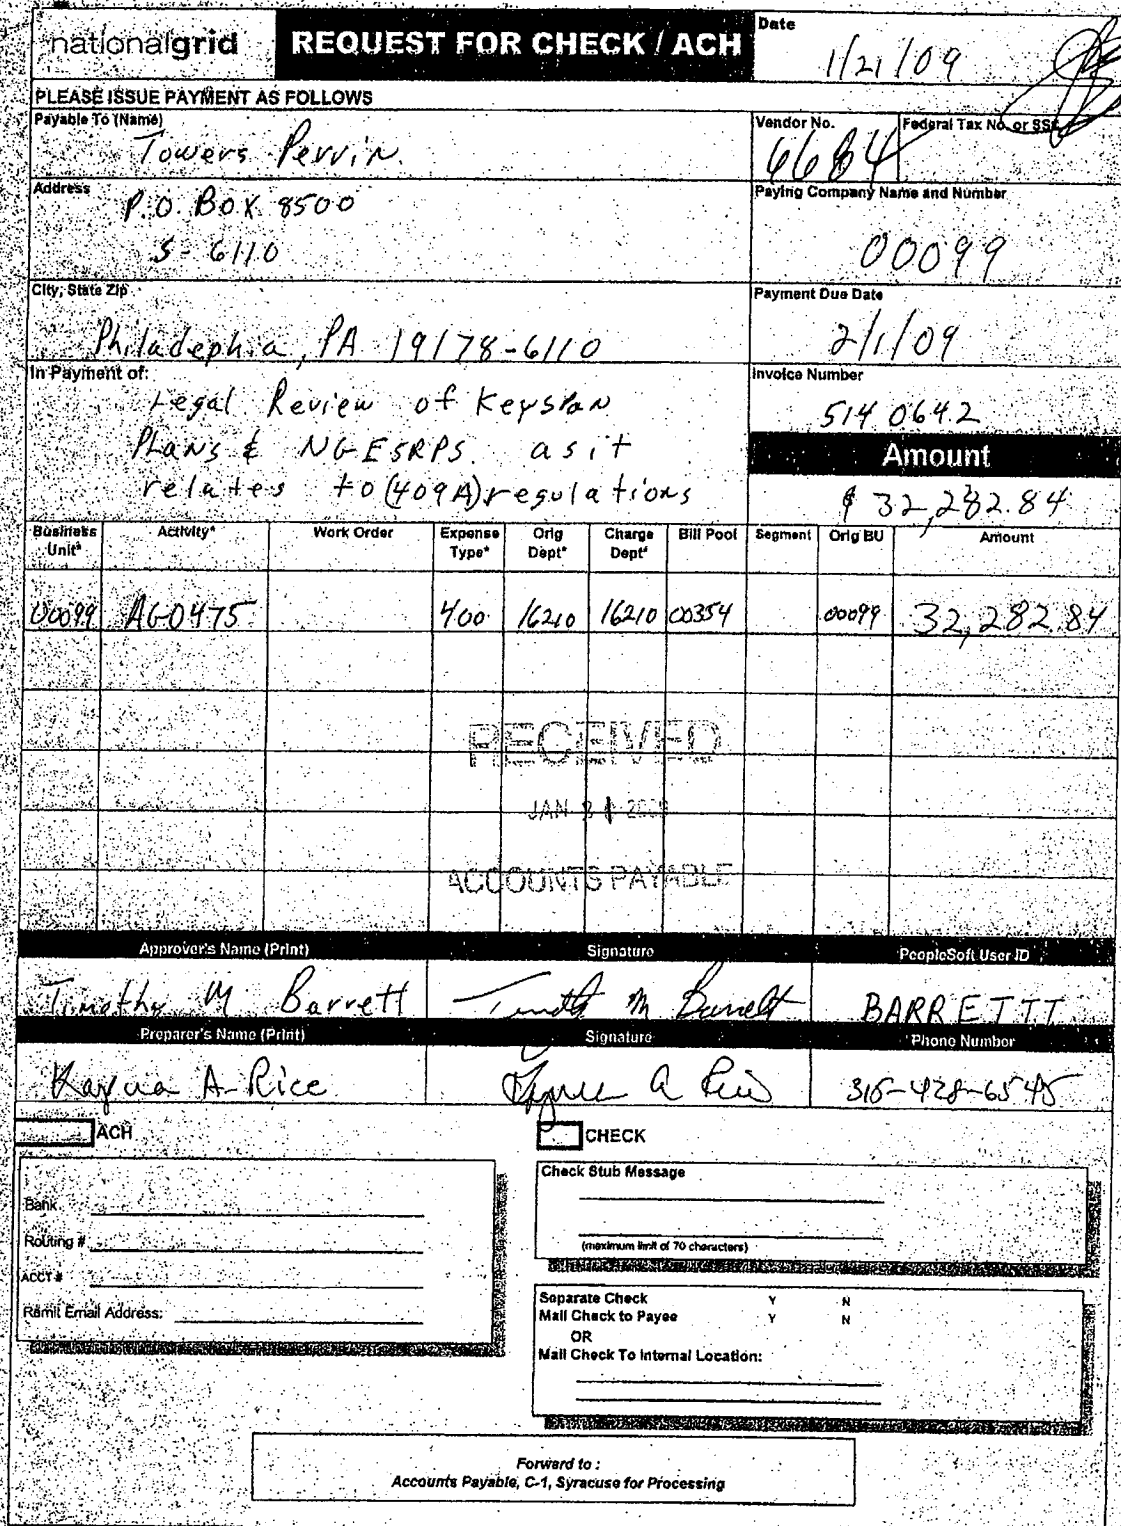 nationalgrid
REQUEST FOR CHECK / ACH
Date
1/21/09
PLEASE ISSUE PAYMENT AS FOLLOWS
Payable To (Name)
Towers Perrin.
Vendor No.
6684
Federal Tax No. or SS#
Address
P.O. BOX 8500
S-6110
Paying Company Name and Number
00099
City, State Zip
Philadephia, PA 19178-6110
Payment Due Date
2/1/09
In Payment of:
Legal Review of Keyspan
Plans & NG ESRPS as it
relates to (409A) regulations
Invoice Number
5140642
Amount
$ 32,282.84
Business Unit* Activity* Work Order Expense Type* Orig Dept* Charge Dept* Bill Pool Segment Orig BU Amount
00099 AG0475 400 16210 16210 00354 00099 32,282.84
RECEIVED
JAN 2009
ACCOUNTS PAYABLE
Approver's Name (Print) Signature PeopleSoft User ID
Timothy M Barrett Timothy M Barrett BARRETTT
Preparer's Name (Print) Signature Phone Number
A. Rice A Rice 315-428-6545
ACH
CHECK
Bank
Routing #
ACCT #
Remit Email Address:
Check Stub Message
(maximum limit of 70 characters)
Separate Check Y N
Mail Check to Payee Y N
OR
Mail Check To Internal Location:
Forward to :
Accounts Payable, C-1, Syracuse for Processing